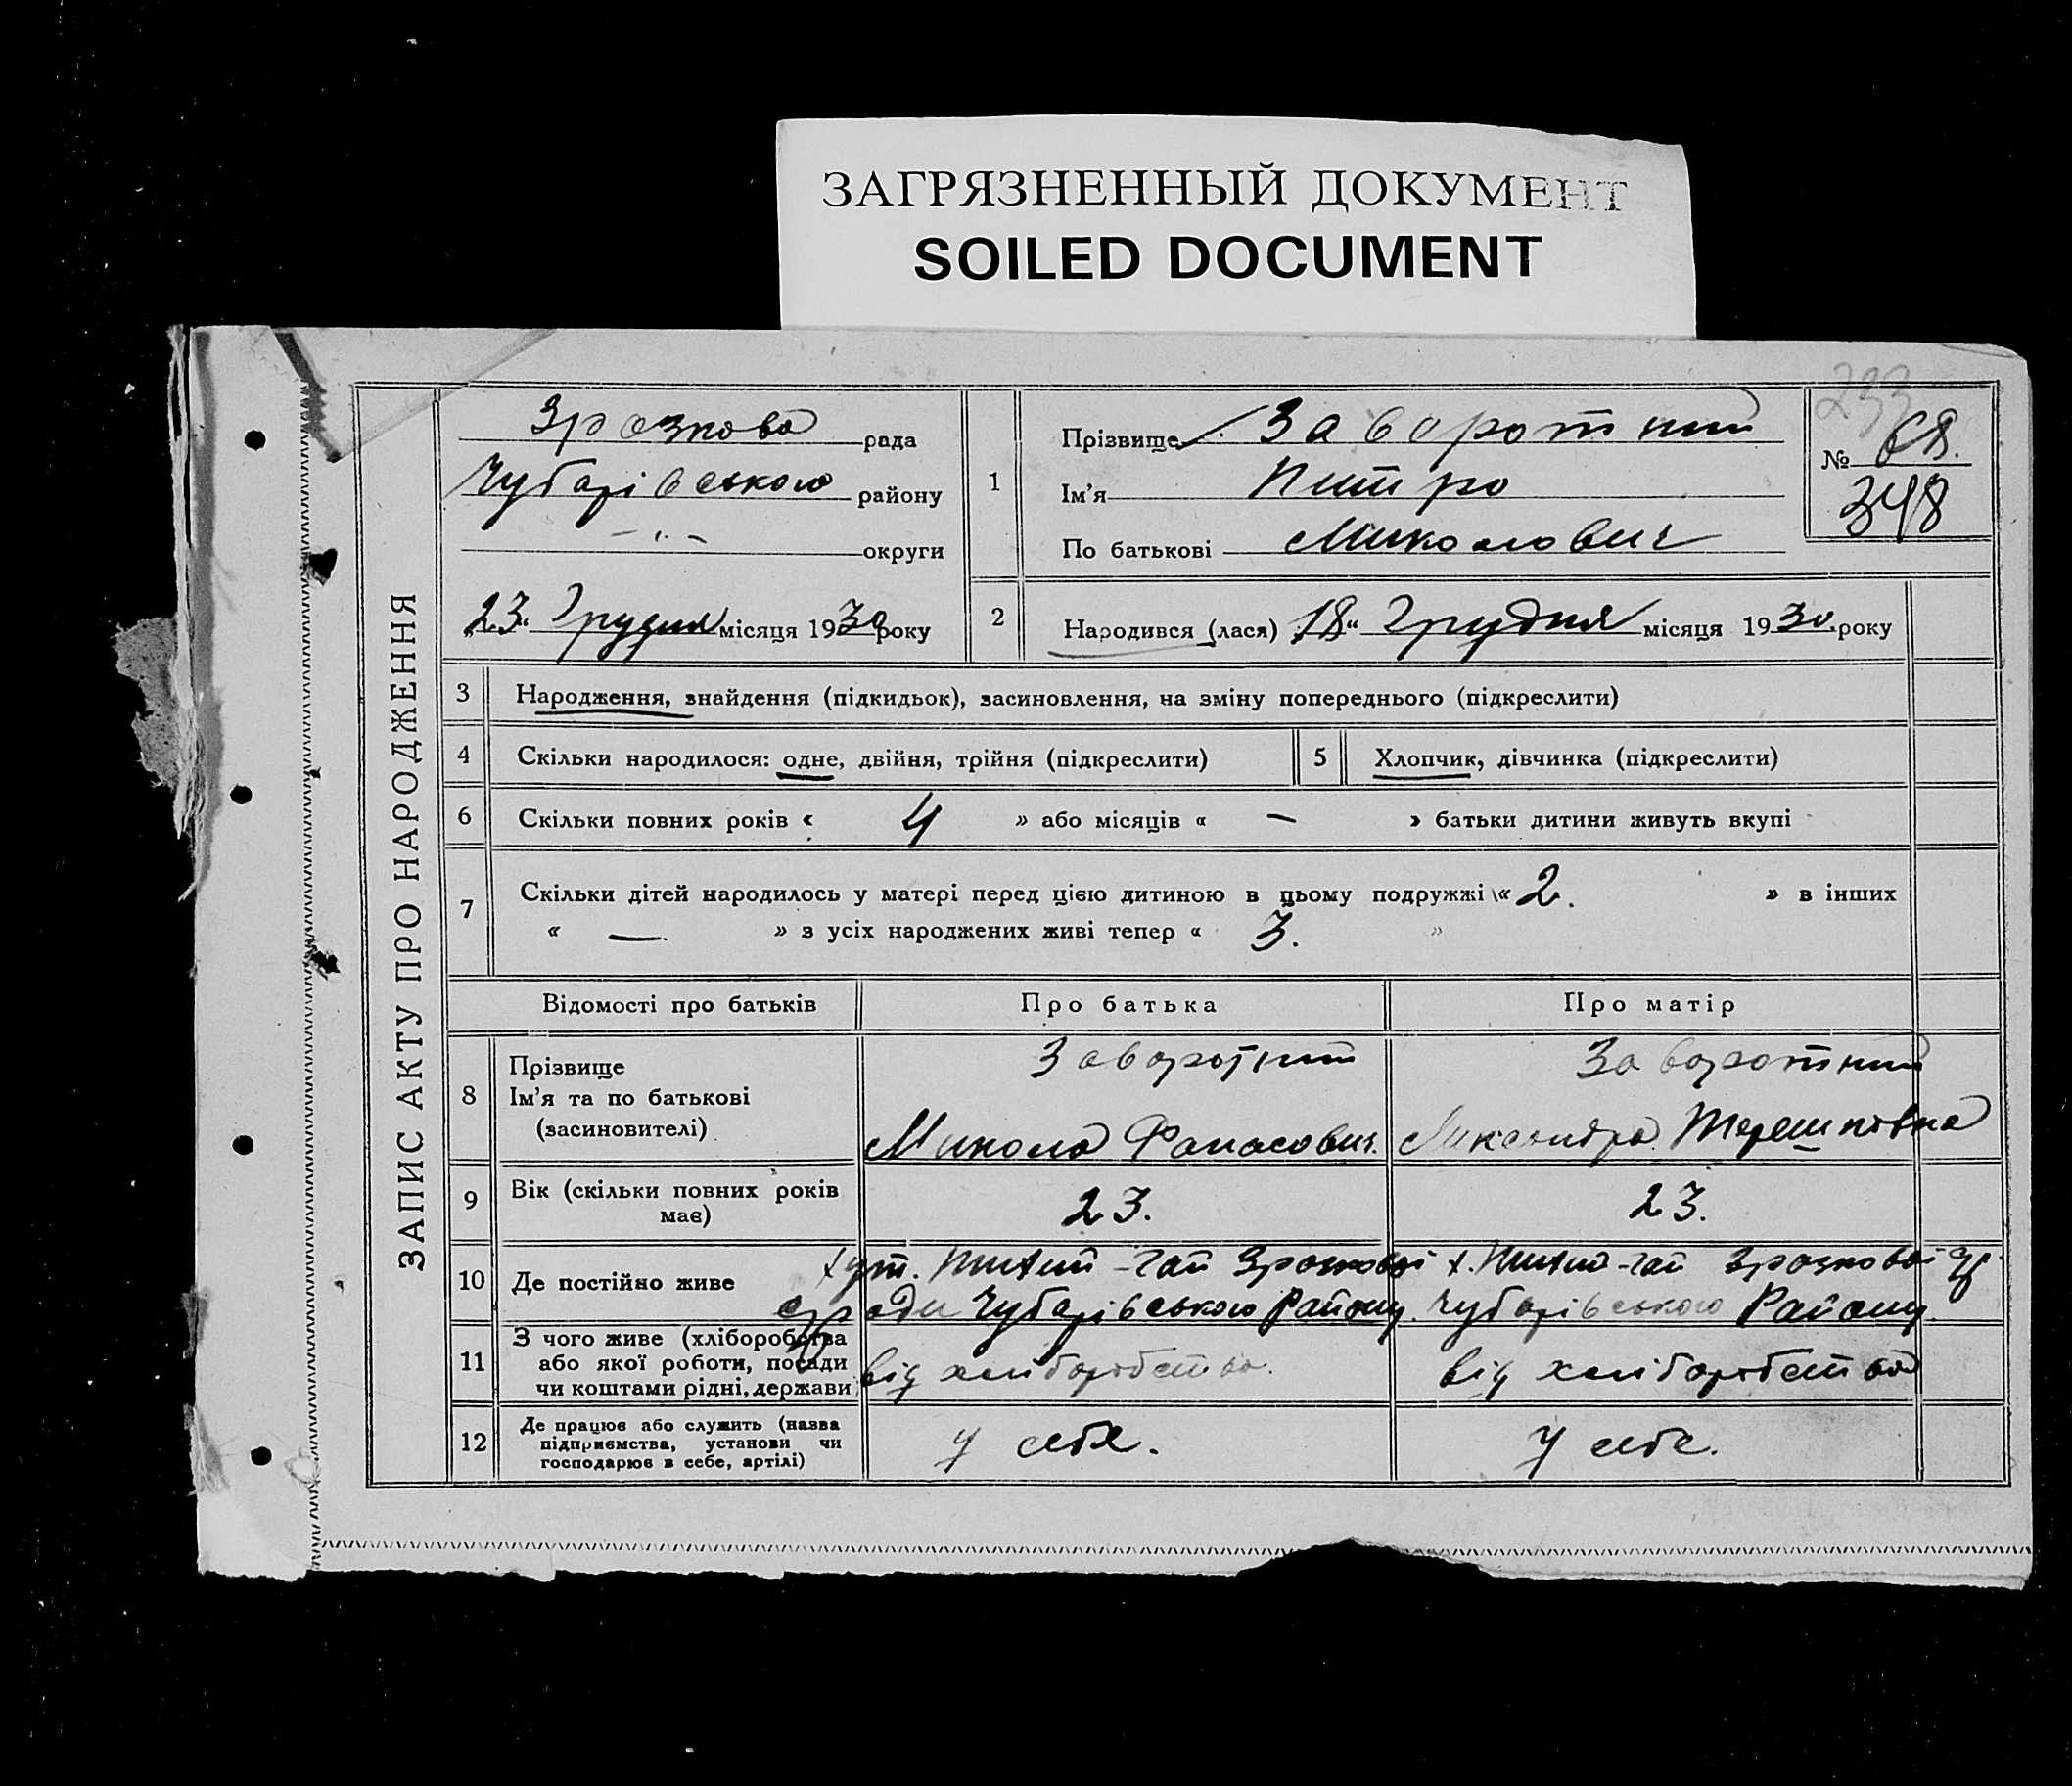 ЗАГРЯЗНЕННЫЙ ДОКУМЕНТ
SOILED DOCUMENT
ЗАПИС АКТУ ПРО НАРОДЖЕННЯ
Зразкова рада
Чубарівського району
-"- округи
23 Грудня місяця 1930 року
1
Прізвище Заворотний
Ім'я Питро
По батькові Миколович
233
№ 68.
348
2 Народився (лася) 18 " Грудня місяця 1930 року
3 Народження, знайдення (підкидьок), засиновлення, на зміну попереднього (підкреслити)
4 Скільки народилося: одне, двійня, трійня (підкреслити)
5 Хлопчик, дівчинка (підкреслити)
6 Скільки повних років « 4 » або місяців « — » батьки дитини живуть вкупі
7 Скільки дітей народилось у матері перед цією дитиною в цьому подружжі « 2. » в інших
« —. » з усіх народжених живі тепер « 3. »
Відомості про батьків Про батька Про матір
8 Прізвище
Ім'я та по батькові
(засиновителі)
Заворотний
Микола Фанасович.
Заворотний
Ликсандра Терешківна
9 Вік (скільки повних років
має)
23.
23.
10 Де постійно живе
хут. -Гай Зразкової
с/ради Чубарівського Району.
х. -Гай Зразкової
Чубарівського Району.
11 З чого живе (хліборобства
або якої роботи, посади
чи коштами рідні, держави
від хліборобства.
від хліборобства
12 Де працює або служить (назва
підприємства, установи чи
господарює в себе, артілі)
у себе.
у себе.